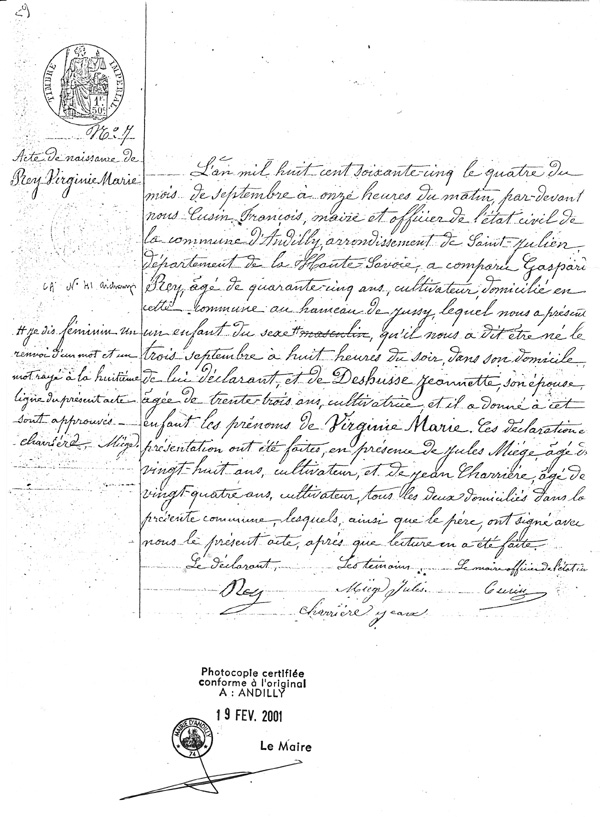 29
TIMBRE IMPERIAL
1F
50c
N° 7
Acte de naissance de
Rey Virginie Marie
#je dis féminin. Un
renvoi d'un mot et un
mot rayé à la huitième
ligne du présent acte
sont approuvés.
charrière, Miège
L'an mil huit cent soixante-cinq le quatre du
mois de septembre à onze heures du matin, par-devant
nous Cusin François, maire et officier de l'état civil de
la commune d'Andilly, arrondissement de Saint-Julien,
département de la Haute-Savoie, a comparu Gaspard
Rey, âgé de quarante-cinq ans, cultivateur, domicilié en
cette commune au hameau de Jussy, lequel nous a présenté
un enfant du sexe #masculin, qu'il nous a dit être né le
trois septembre à huit heures du soir, dans son domicile
de lui déclarant, et de Deshusse Jeannette, son épouse,
âgée de trente-trois ans, cultivatrice, et il a donné à cet
enfant les prénoms de Virginie Marie. Ces déclaration
présentation ont été faites, en présence de Jules Miège, âgé de
vingt huit ans, cultivateur, et de Jean Charrière, âgé de
vingt-quatre ans, cultivateur, tous les deux domiciliés dans la
présente commune, lesquels, ainsi que le père, ont signé avec
nous le présent acte, après que lecture en a été faite.
Le déclarant, Les témoins, Le maire officier de l'état civil
Rey Miège Jules Cusin
charrière jean
Photocopie certifiée
conforme à l'original
A : ANDILLY
19 FEV. 2001
MAIRIE D'ANDILLY
74
Le Maire